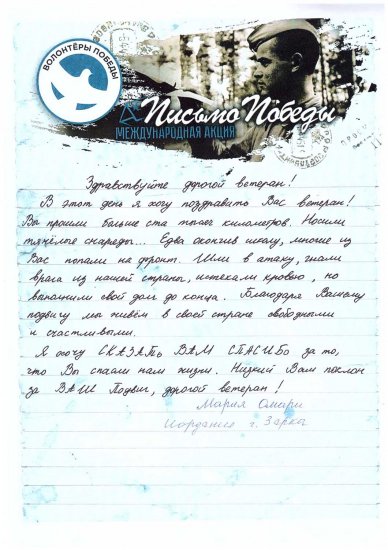 ВОЛОНТЁРЫ ПОБЕДЫ
Письмо Победы
МЕЖДУНАРОДНАЯ АКЦИЯ
Здравствуйте дорогой ветеран!
В этот день я хочу поздравить Вас ветеран!
Вы прошли больше ста тысяч километров. Носили
тяжелые снаряды... Едва окончив школу, многие из
Вас попали на фронт. Шли в атаку, гнали
врага из нашей страны, истекали кровью но
выполнили свой долг до конца. Благодаря Вашему
подвигу мы живём в своей стране свободными
и счастливыми.
Я хочу СКАЗАТЬ ВАМ СПАСИБО за то,
что Вы спасли нам жизни. Низкий Вам поклон
за ВАШ Подвиг, дорогой ветеран!
Мария Омари
Иордания г. Зарка